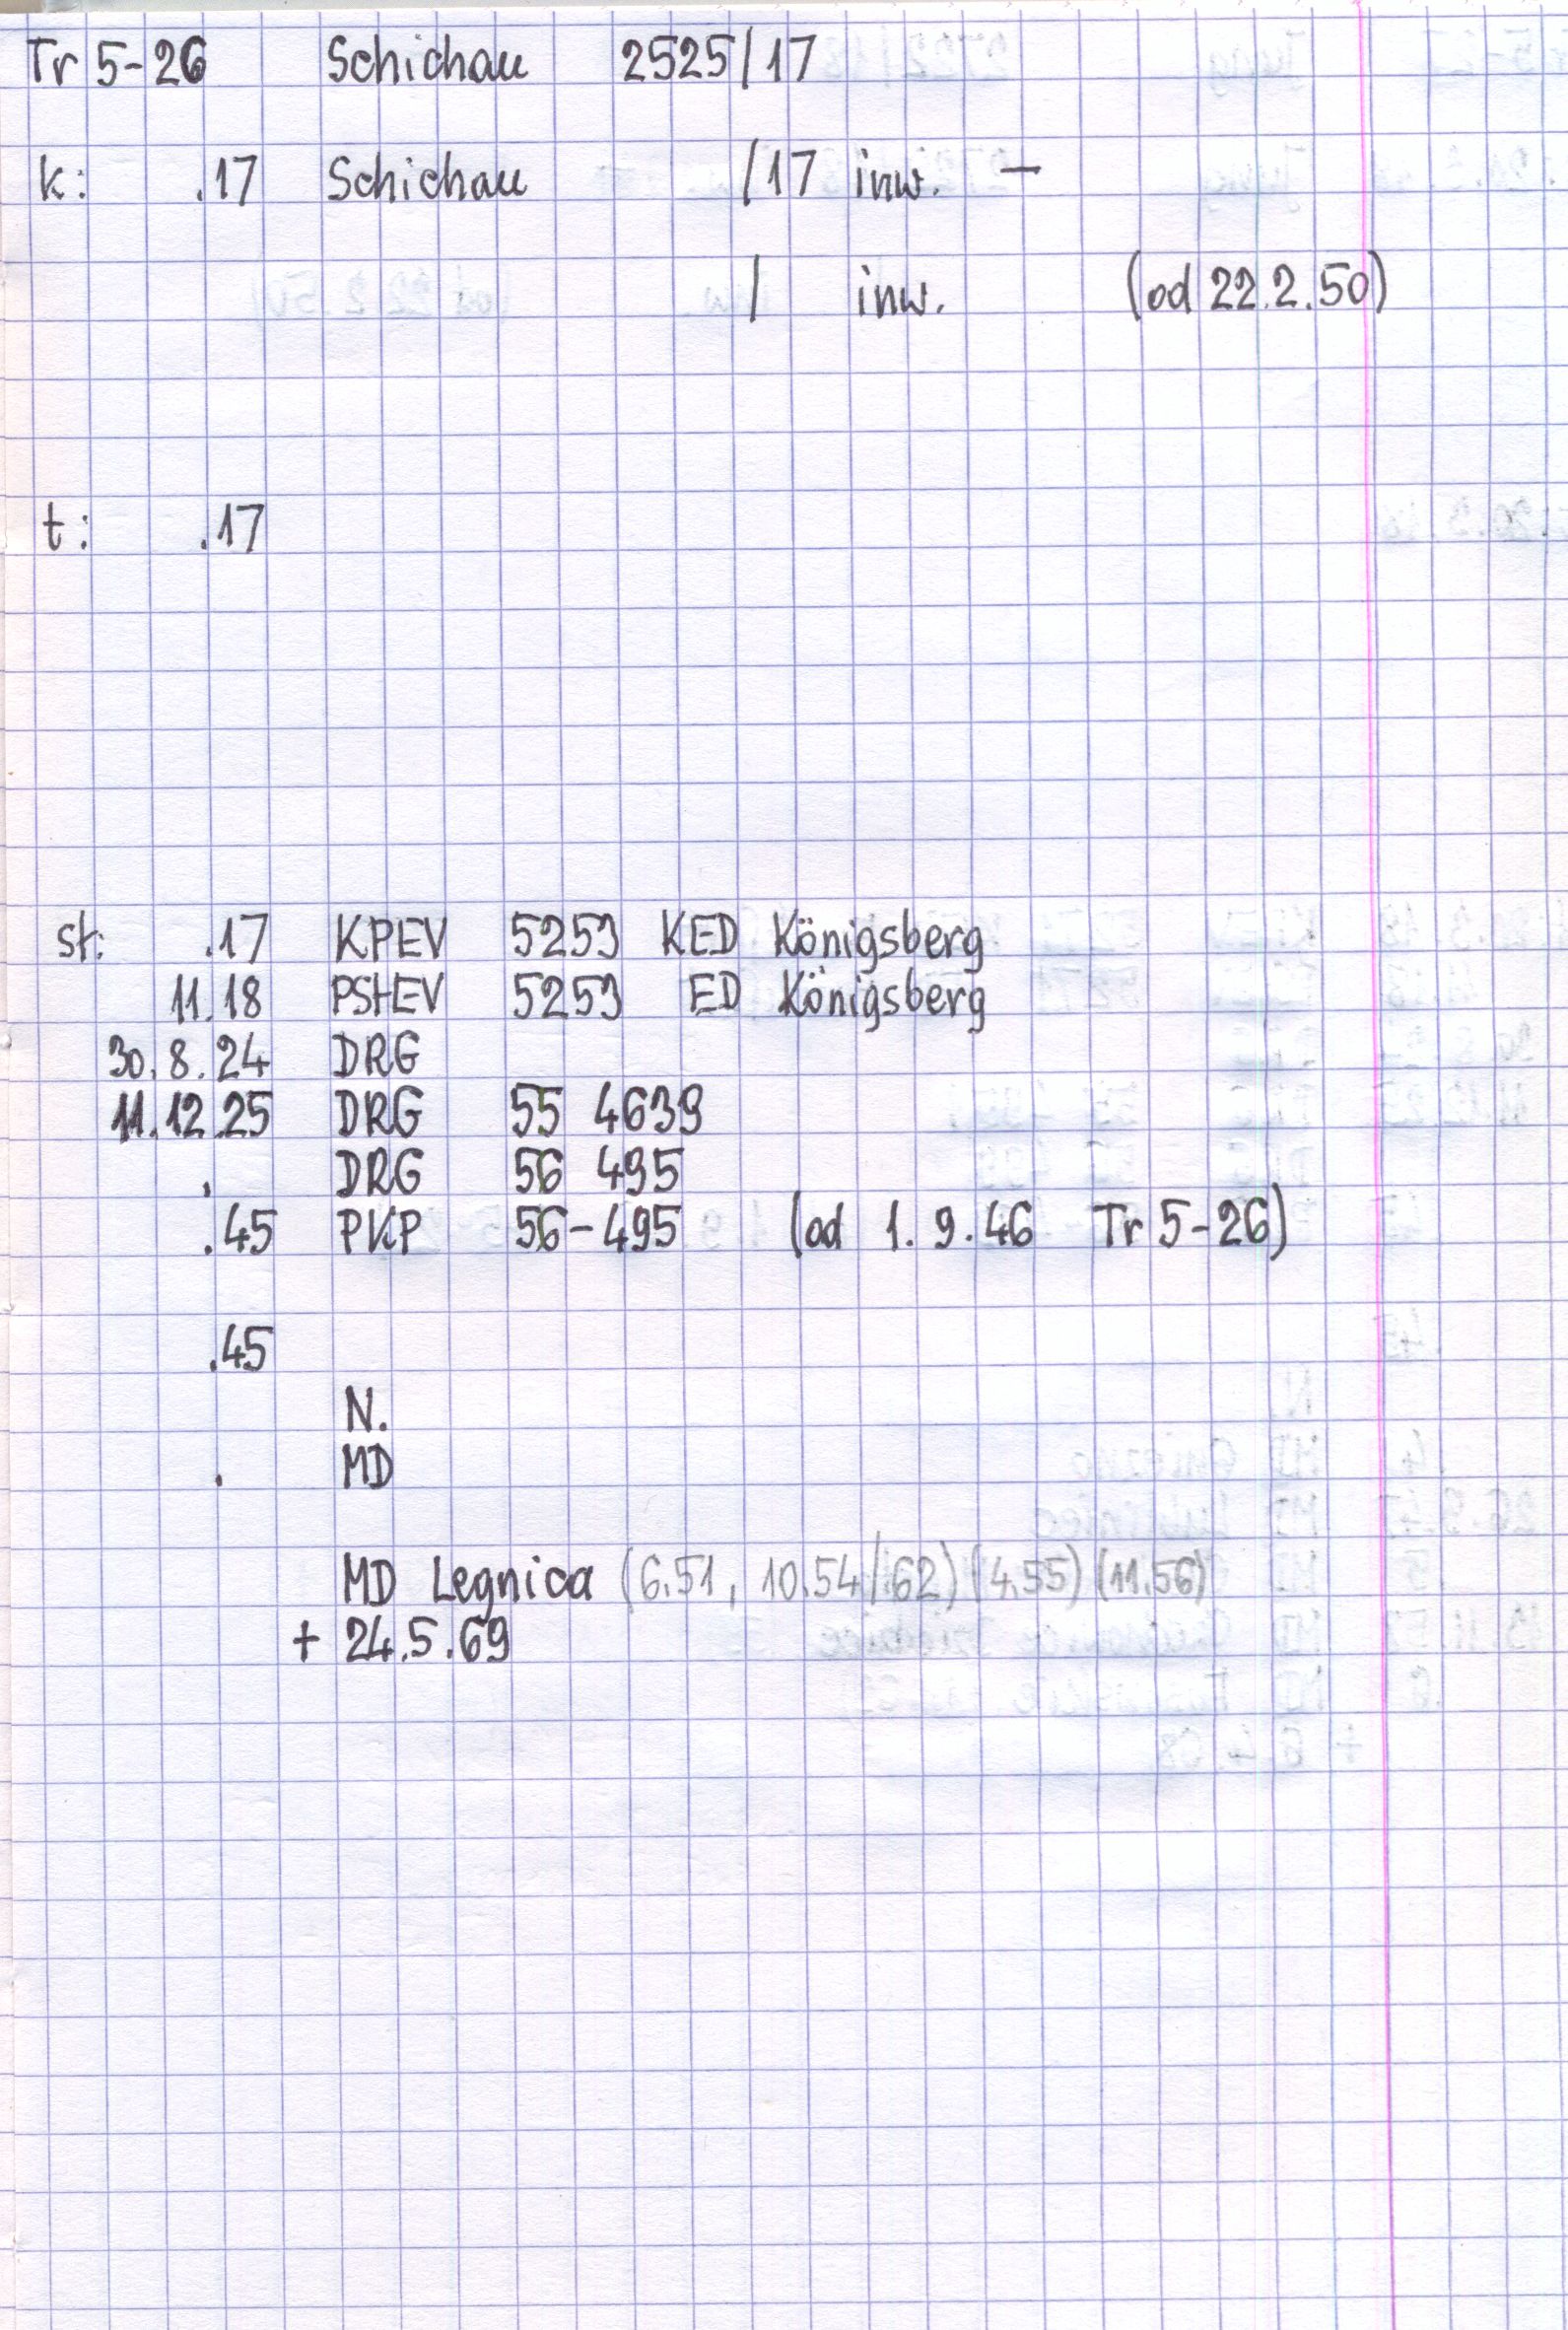 Tr 5-26 Schichau 2525/17
k: .17 Schichau /17 inw. —
/ inw. (od 22.2.50)
t: .17
st: .17 KPEV 5253 KED Königsberg
11.18 PStEV 5253 ED Königsberg
30.8.24 DRG
11.12.25 DRG 55 4639
. DRG 56 495
.45 PKP 56-495 (od 1.9.46 Tr 5-26)
.45
N.
. MD
MD Legnica (6.51, 10.54/62) (4.55) (11.56)
+ 24.5.69